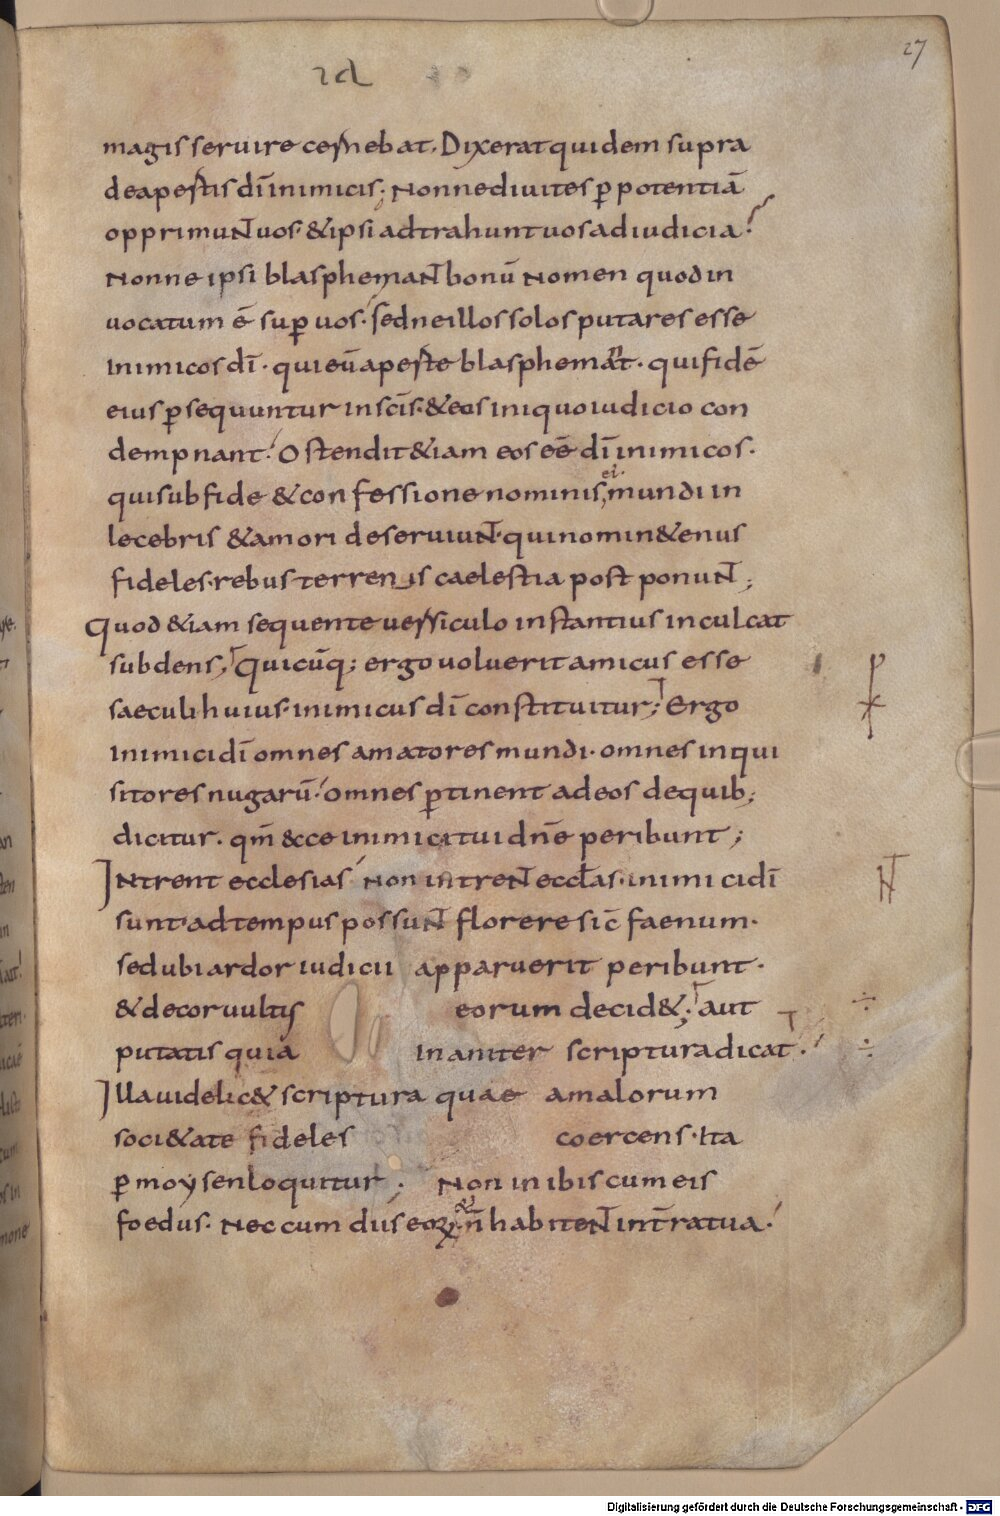 27
magis seruire cernebat. Dixerat quidem supra
de apertis dī inimicis; Nonne diuites ꝑ potentiā
opprimuNT uos· & ipsi adtrahunt uos ad iudicia?
Nonne ipsi blasphemaNT bonū nomen quod in
uocatum ē suꝑ uos· sed ne illos solos putares esse
inimicos dī· qui eū aperte blasphemant· qui fidē
eius ꝑsequuntur in scīs· & eos iniquo iudicio con
dempnant· Ostendit & iam eos eē dī inimicos·
qui sub fide & confessione nominis ei mundi in
lecebris & amori deseruiuNT· qui nomin& enus
fideles· rebus terrenis caelestia post ponuNT;
Quod & iam sequente uersiculo instantius inculcat
subdens; Quicūq; ergo uoluerit amicus esse
saeculi huius· inimicus dī constituitur; Ergo
inimici dī omnes amatores mundi· omnes inqui
sitores nugarū· omnes ꝑtinent ad eos de quib;
dicitur· qm̄ ecce inimici tui dn̄e peribunt;
INtrent ecclesias· Non intreNT eccl̄as· inimici dī
sunt· ad tempus possuNT florere sic̄ faenum·
sed ubi ardor iudicii apparuerit peribunt·
& decor uultus eorum decid&; aut
putatis quia inaniter scriptura dicat·
Illa uidelic& scriptura quae a malorum
soci&ate fideles coercens· Ita
ꝑ moysen loquitur; Non inibis cum eis
foedus· Nec cum diis eoꝝ· & n̄ habiteNT in t̄ra tua·
Digitalisierung gefördert durch die Deutsche Forschungsgemeinschaft - DFG